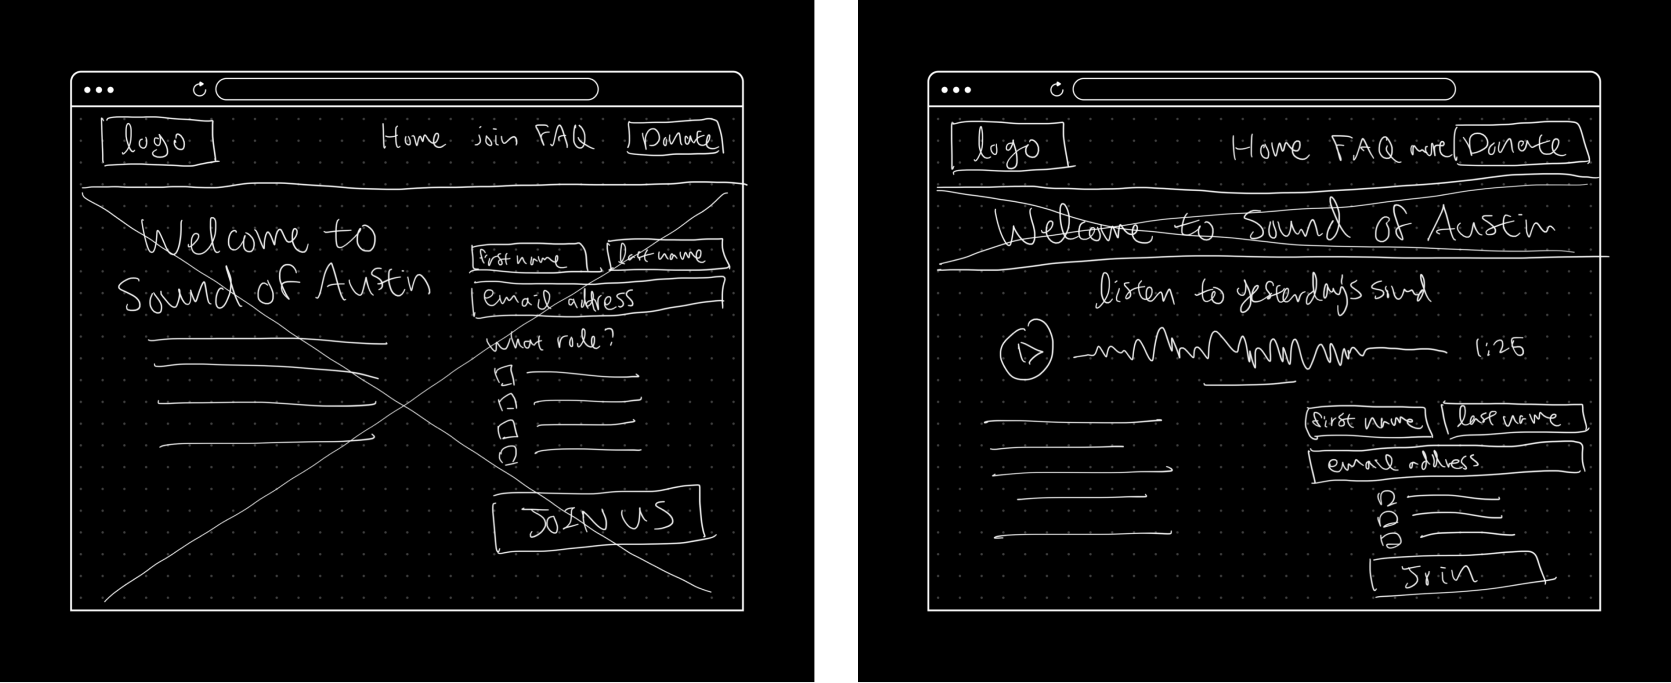 logo
Home join FAQ Donate
Welcome to
Sound of Austin
first name last name
email address
what role?
JOIN US
logo
Home FAQ more Donate
Welcome to Sound of Austin
listen to yesterday's sound
1:25
first name last name
email address
Join